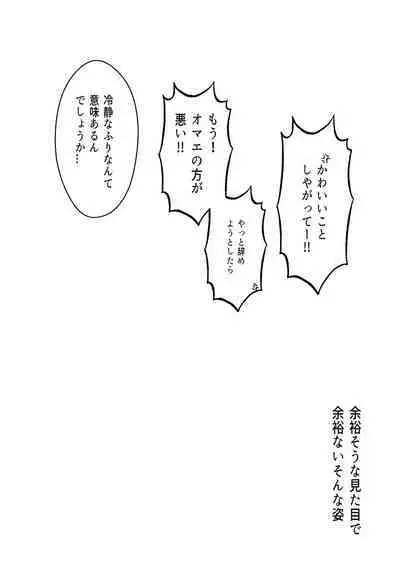 かわいいこと
しやがってー!!
やっと辞め
ようとしたら
もう!
オマエの方が
悪い!!
冷静なふりなんて
意味あるん
でしょうか…
余裕そうな見た目で
余裕ないそんな姿